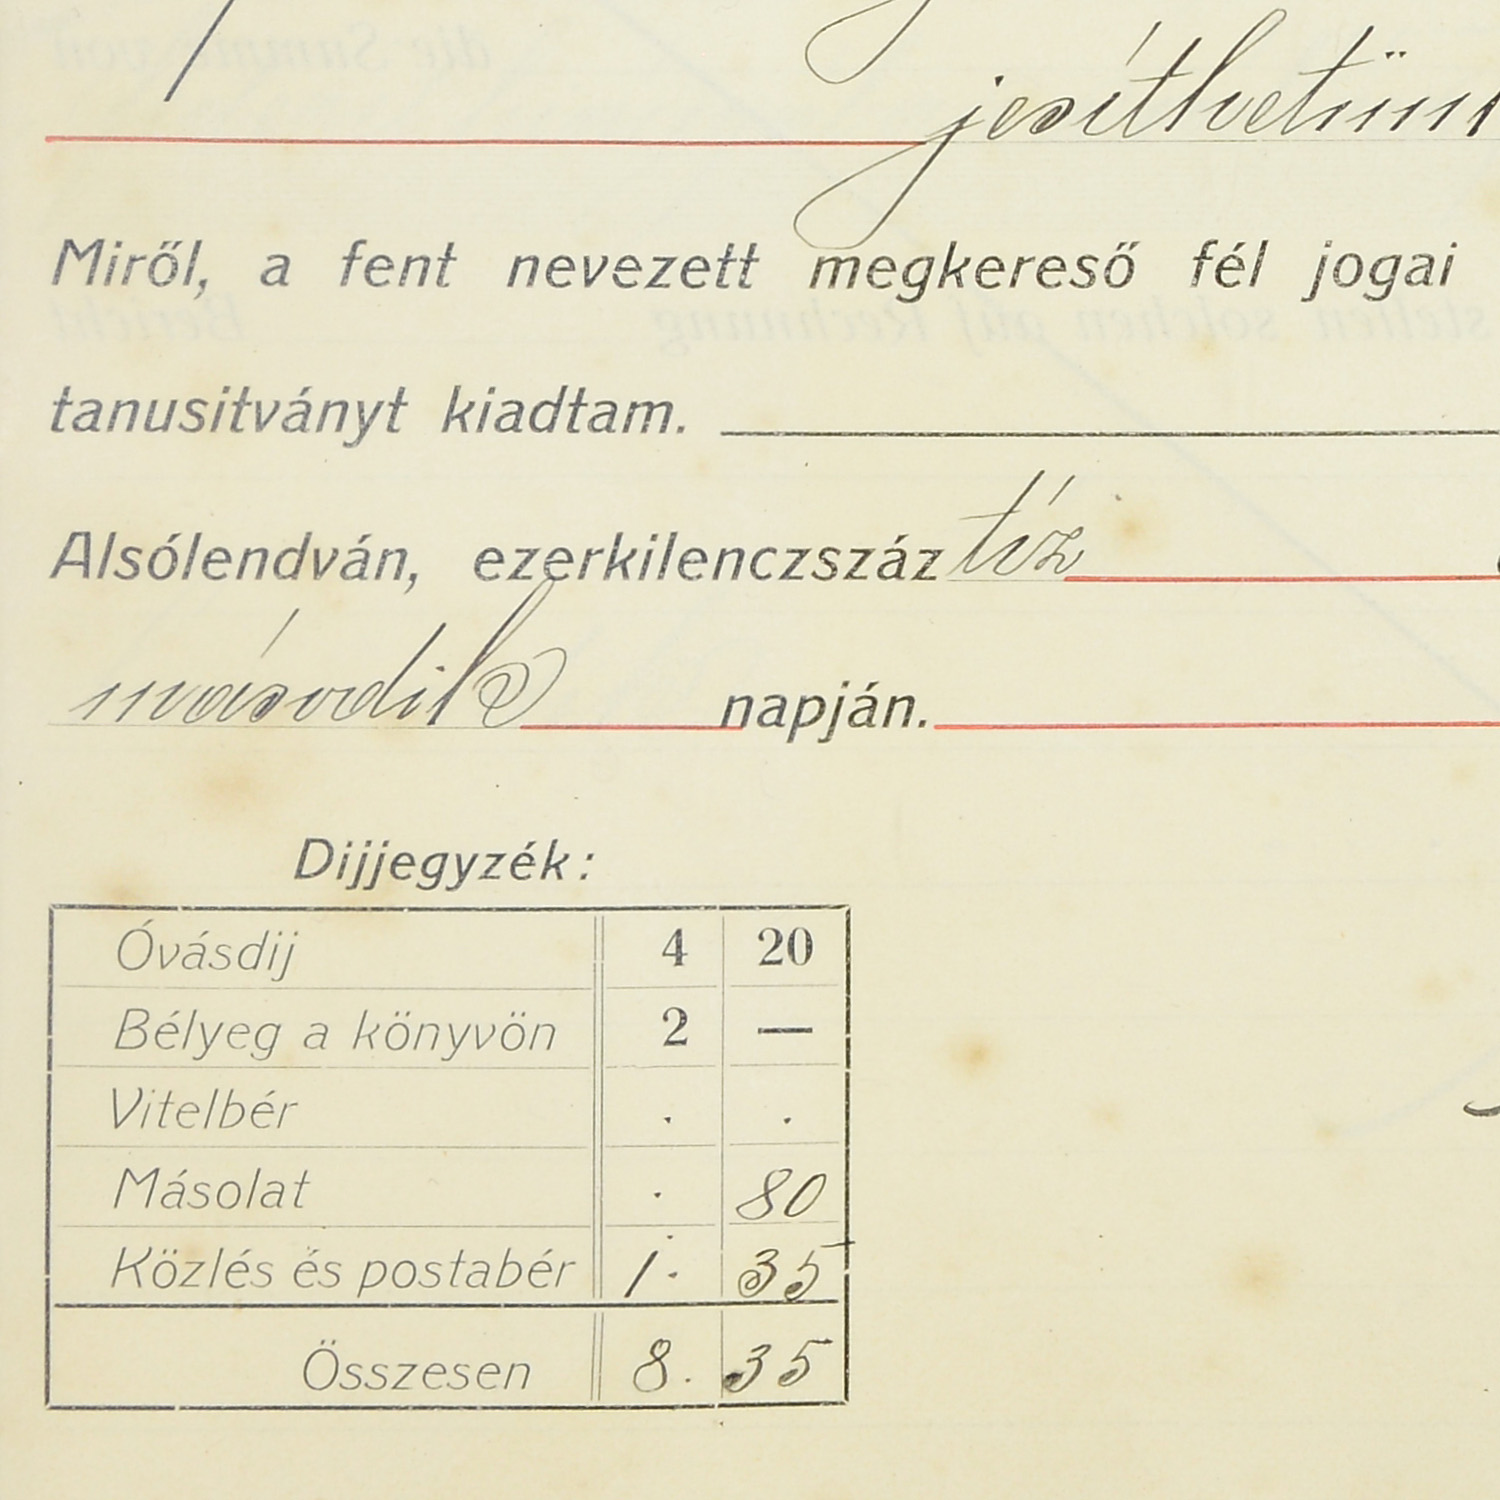 jesíthetünk
Miről, a fent nevezett megkereső fél jogai
tanusitványt kiadtam.
Alsólendván, ezerkilenczszáz tíz
második napján.
Dijjegyzék:
Óvásdij 4 20
Bélyeg a könyvön 2 —
Vitelbér . .
Másolat . 80
Közlés és postabér 1. 35
Összesen 8. 35